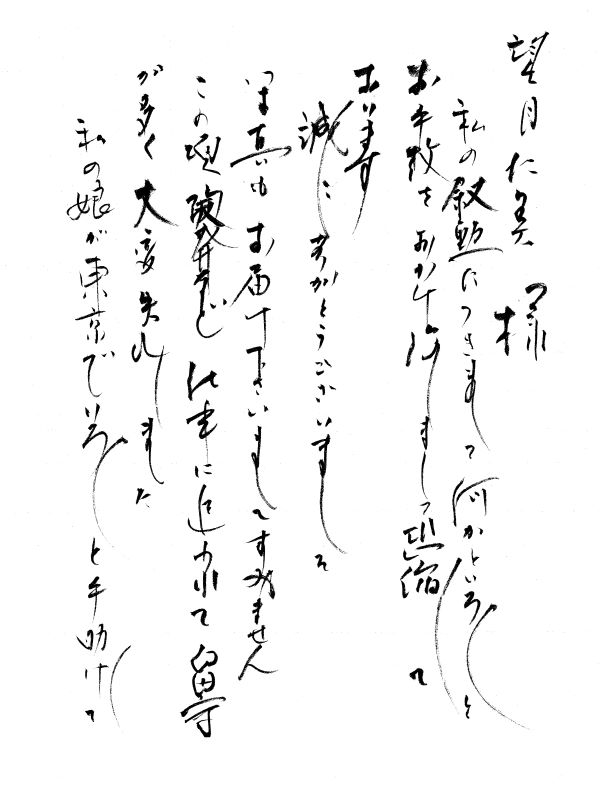 望月仁美様
私の叙勲につきまして何かといろいろと
お手数をおかけ致しまして恐縮して
おります
誠にありがとうございました
写真もお届け下さいましてすみません
この頃陶芸など仕事に追われて留守
が多く大変失礼しました
私の娘が東京でいろいろと手助けして